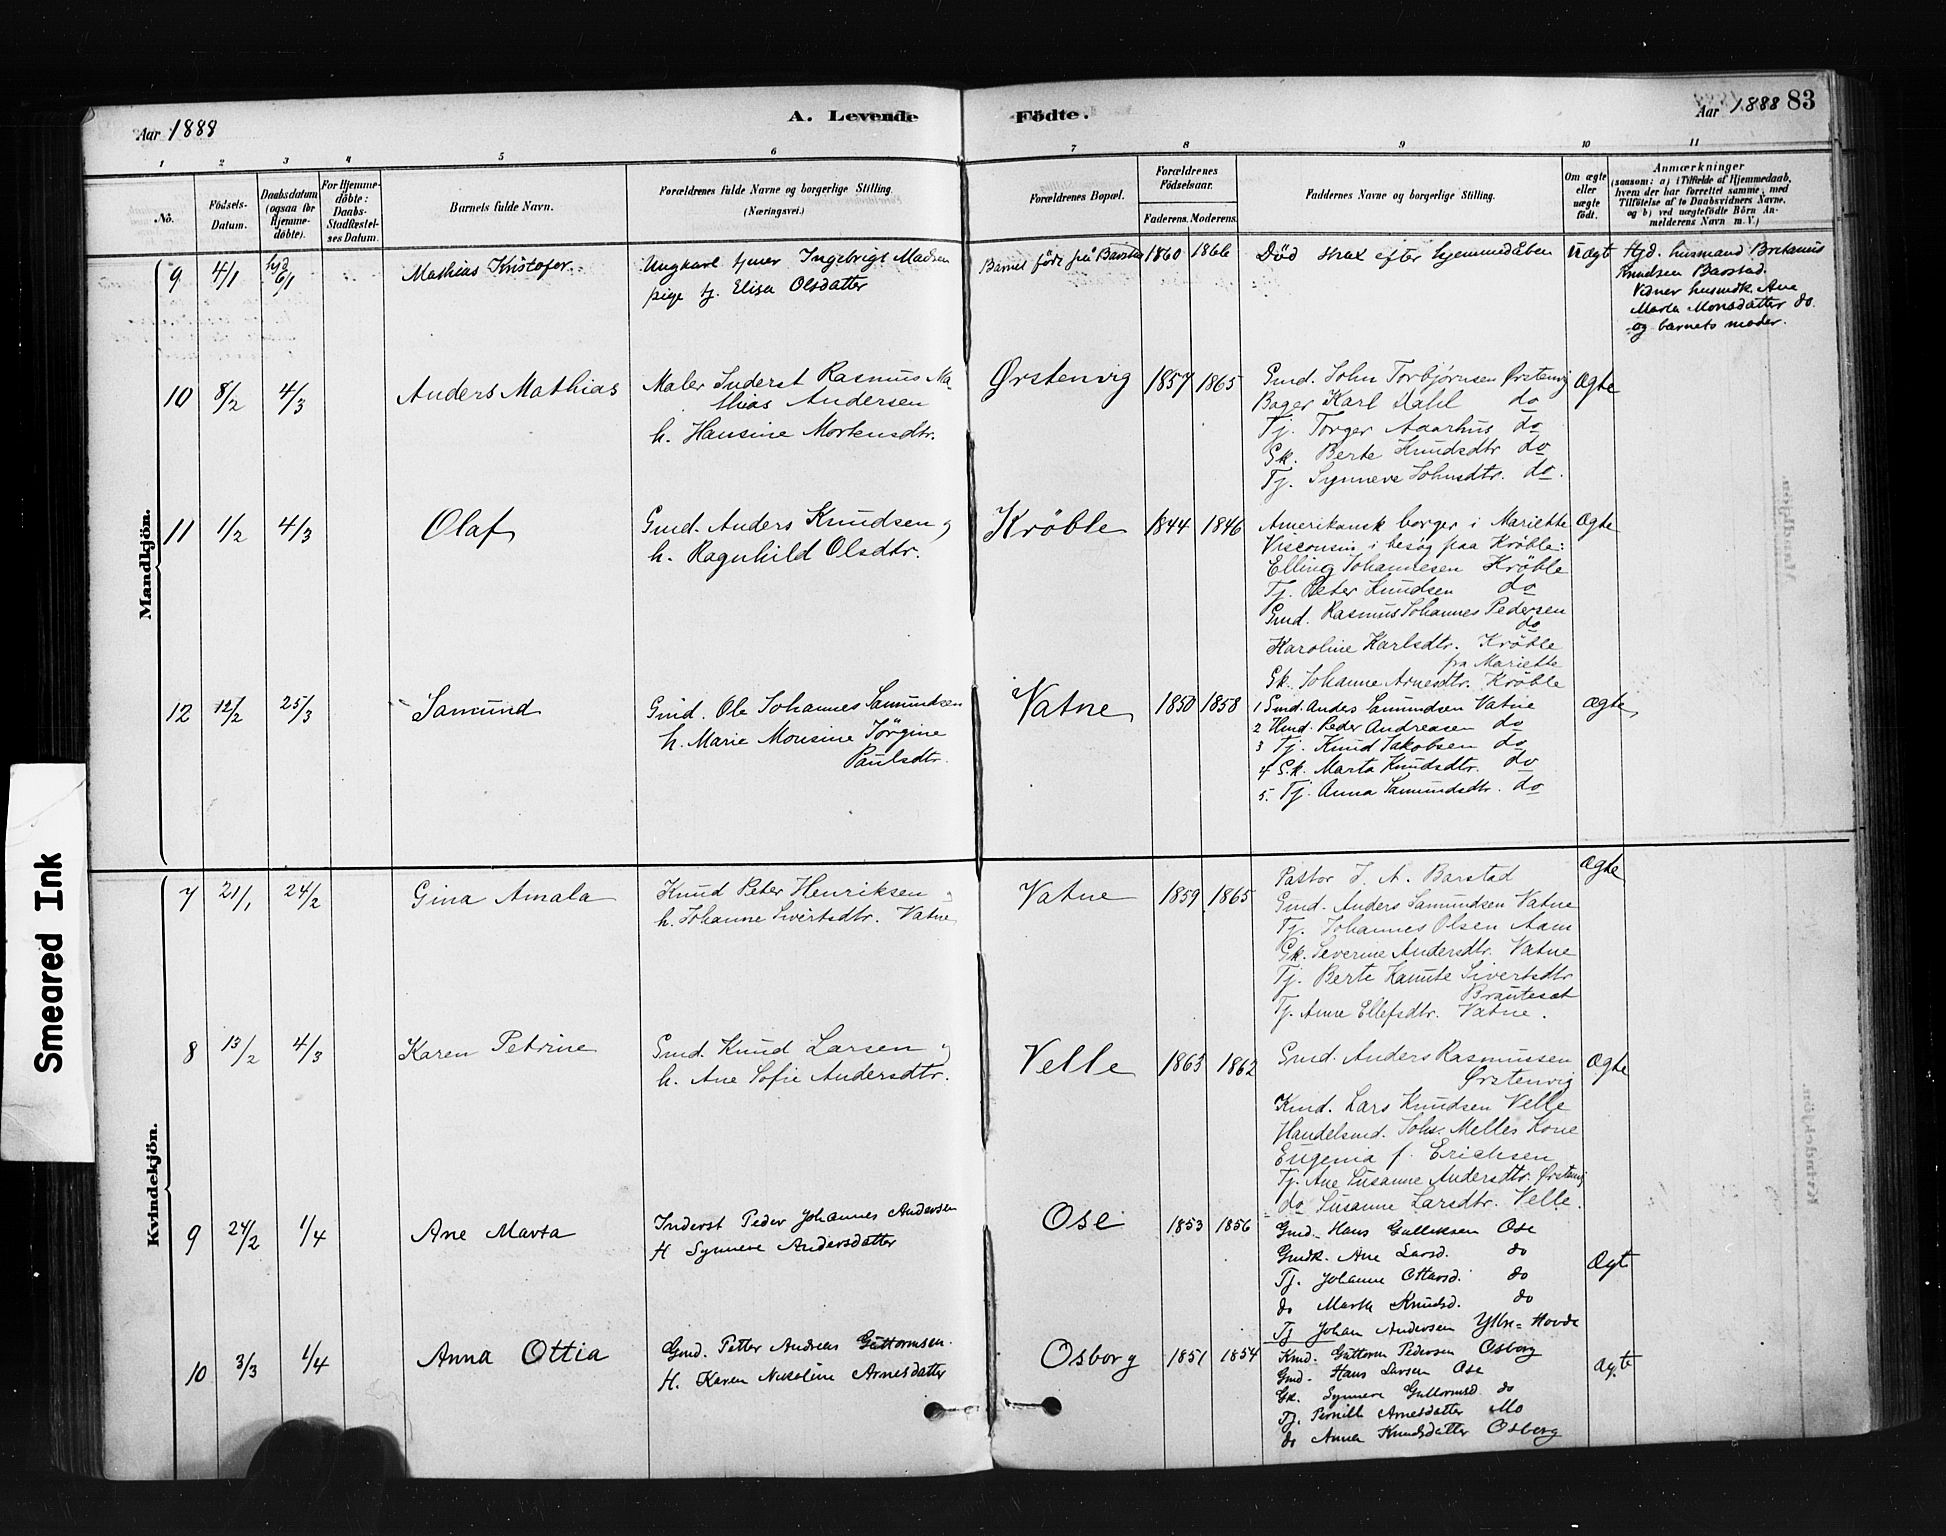 Aar 1888
A. Levende
Födte.
Aar 1888 83
1 2 3 4 5 6 7 8 9 10 11
No.
Födsels-Datum.
Daabsdatum (ogsaa for Hjemmedöbte).
For Hjemmedöbte: Daabs-Stadfæstelses Datum.
Barnets fulde Navn.
Forældrenes fulde Navne og borgerlige Stilling.
(Næringsvei.)
Forældrenes Bopæl.
Forældrenes Födselsaar.
Faderens. Moderens.
Faddernes Navne og borgerlige Stilling.
Om ægte eller uægte födt.
Anmærkninger
(saasom: a) i Tilfælde af Hjemmedaab,
hvem der har forrettet samme, med
Tilföielse af to Daabsvidners Navne,
og b) ved uægtefödte Börn An-
melderens Navn m. V.)
Mandkjön.
9 4/1 hjd 6/1 Mathias Kristofer.
Ungkarl tjener Ingebrigt Madsen
pige tj. Elisa Olsdatter
Barnet född på Barstad 1860 1866
Död strax efter hjemmedåben
Uægt
Hjd. husmand Bretanus
Knudsen Barstad.
Vidner husmdk. Ane
Marta Monsdatter do.
og barnets moder.
10 8/2 4/3 Anders Mathias
Maler Inderst Rasmus Ma-
thias Andersen
h. Hansine Mortensdtr.
Ørstenvig 1857 1865
Gmd. John Torbjørnsen Ørstenvig
Bager Karl Dahl do
Tj. Torger Aaarhus do
Gk. Berte Knudsdtr do
Tj. Synneve Johnsdtr. do.
Ægte
11 1/2 4/3 Olaf
Gmd. Anders Knudsen og
h. Ragnhild Olsdtr.
Kröble 1844 1846
Amerikansk borger i Mariette
Visconsin, i besög paa Kröble:
Elling Johannesen Kröble
Tj. Peter Knudsen do
Gmd. Rasmus Johannes Pedersen
do
Karoline Karlsdtr. Kröble
fra Mariette
Gk. Johanne Arnesdtr. Kröble
Ægte
12 12/2 25/3 Samund
Gmd. Ole Johannes Samundsen
h. Marie Monsine Jörgine
Paulsdtr.
Vatne 1850 1858
1 Gmd. Anders Samundsen Vatne
2 Hmd. Peder Andreasen do
3 Tj. Knud Jakobsen do
4 Gk. Marta Knudsdtr. do
5. Tj. Anna Samundsdtr. do
Ægte
Kvindekjön.
7 21/1 24/2 Gina Amala
Knud Peter Henriksen og
h. Johanne Sivertsdtr. Vatne
Vatne 1859 1865
Pastor J. A. Barstad
Gmd. Anders Samundsen Vatne
Tj. Johannes Olsen Aam
Gk. Severine Andersdtr. Vatne
Tj. Berte Kanute Sivertsdtr
Brauteset
Tj. Anne Ellefsdtr. Vatne.
Ægte
8 13/2 4/3 Karen Petrine
Gmd. Knud Larsen og
h. Ane Sofie Andersdtr.
Velle 1863 1862
Gmd. Anders Rasmussen
Ørstenvig
Kmd. Lars Knudsen Velle
Handelsmd. Johs. Melles Kone
Eugenia f. Erichsen
Tj. Ane Susanne Andersdtr. Ørstenvig
do Susanne Larsdtr. Velle.
Ægte
9 24/2 1/4 Ane Marta
Inderst Peder Johannes Andersen
H Synneve Andersdatter
Ose 1853 1856
Gmd. Hans Gulleksen Ose
Gmdk. Ane Larsd. do
Tj. Johanne Ottarsd. do
do Marta Knudsd. do
Tj Johan Andersen Ytre-Hovde
Ægte
10 3/3 1/4 Anna Ottia
Gmd. Petter Andreas Guttormsen
H. Karen Nikoline Arnesdatter
Osborg 1851 1854
Kmd. Guttorm Pedersen Osborg
Gmd. Hans Larsen Ose
Gk. Synneve Guttormsd. do
Tj. Pernille Arnesdatter Mo
do Anna Knudsdatter Osborg
Ægte
Smeared Ink